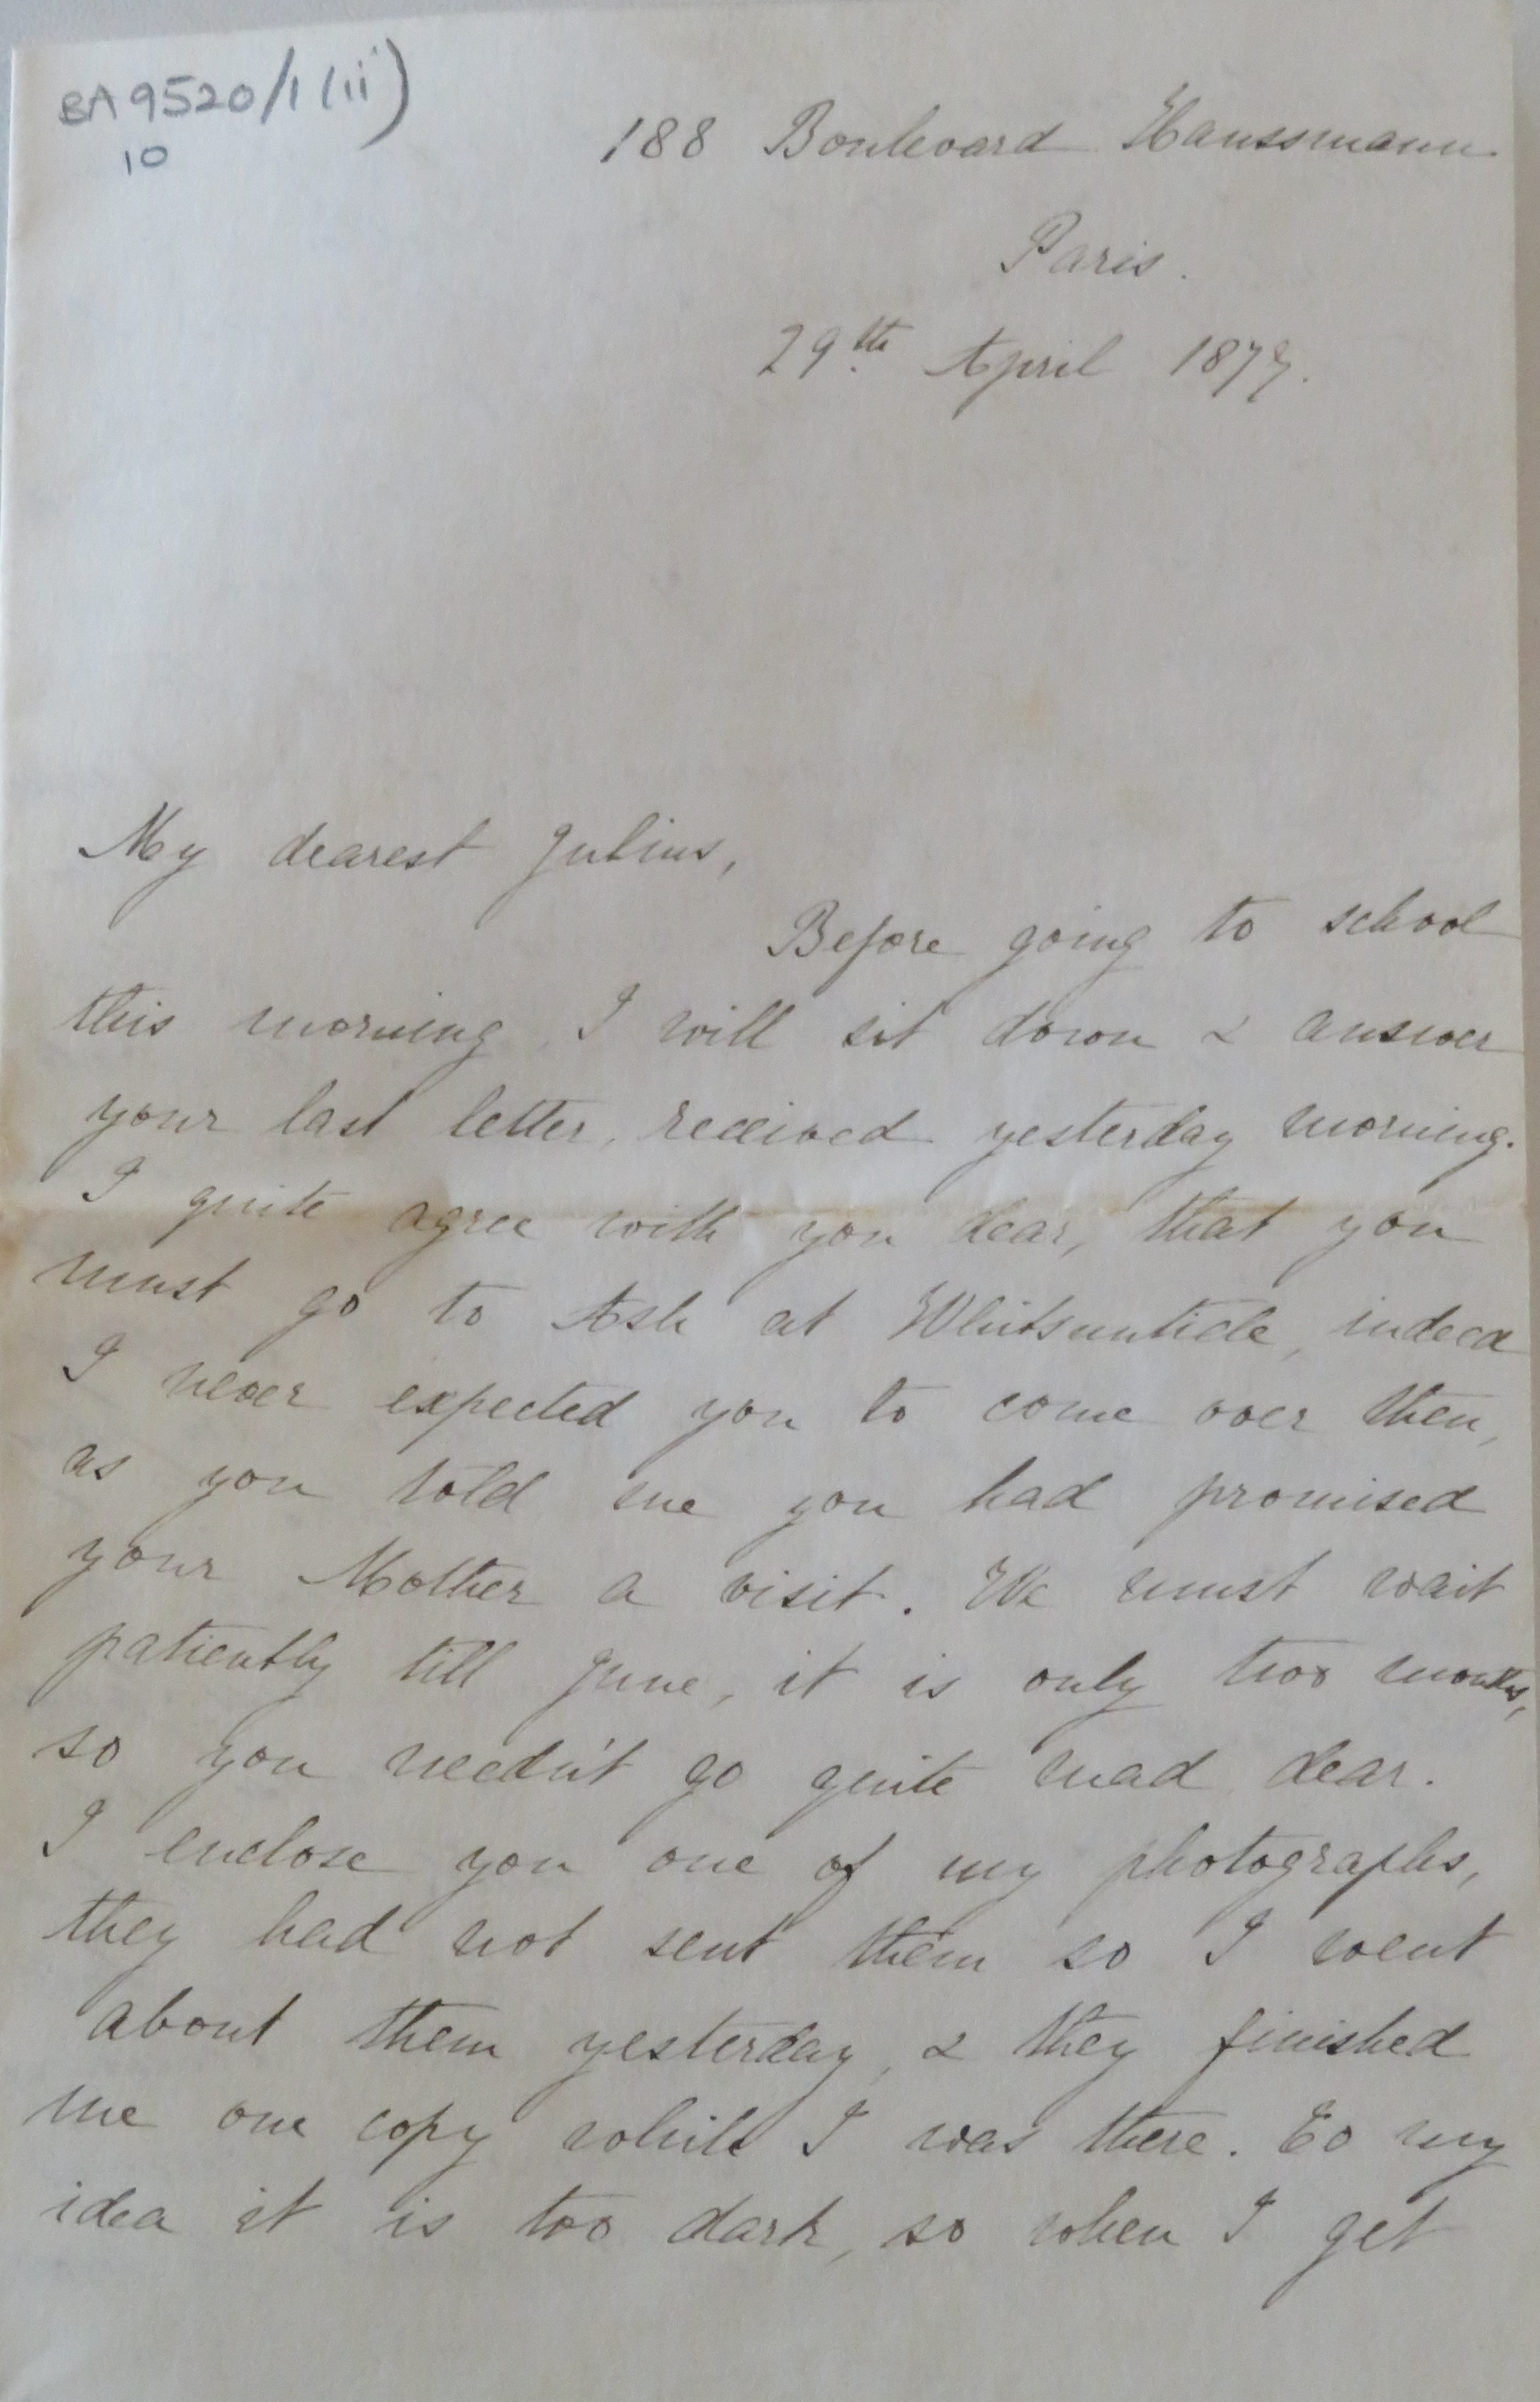 BA 9520/1 (ii)
10
188 Boulevard Haussmann
Paris.
29th April 1879.
My dearest Julius,
Before going to school
this morning, I will sit down & answer
your last letter, received yesterday morning.
I quite agree with you dear, that you
must go to Ash at Whitsuntide, indeed
I never expected you to come over then,
as you told me you had promised
your Mother a visit. We must wait
patiently till June, it is only two months,
so you needn't go quite mad dear.
I enclose you one of my photographs,
they had not sent them so I went
about them yesterday, & they finished
me one copy while I was there. To my
idea it is too dark, so when I get